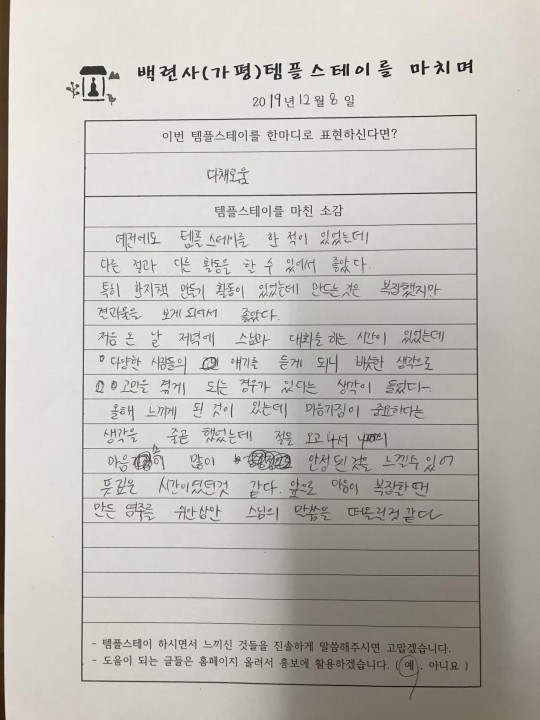 백련사(가평)템플스테이를 마치며
2019년 12월 8일
이번 템플스테이를 한마디로 표현하신다면?
다채로움
템플스테이를 마친 소감
예전에도 템플스테이를 한 적이 있었는데
다른 절과 다른 활동을 할 수 있어서 좋았다.
특히 한지책 만들기 활동이 있었는데 만드는 것은 복잡했지만
결과물을 보게 되어서 좋았다.
처음 온 날 저녁에 스님과 대화를 하는 시간이 있었는데
다양한 사람들의 얘기를 듣게 되니 비슷한 생각으로
고민을 겪게 되는 경우가 있다는 생각이 들었다.
올해 느끼게 된 것이 있는데 마음가짐이 중요하다는
생각을 줄곧 했었는데 절을 오고나서
마음이 많이 안정된 것을 느낄수 있어
뜻깊은 시간이였던것 같다. 앞으로 마음이 복잡할 땐
만든 염주를 위안삼아 스님의 말씀을 떠올릴것 같다
- 템플스테이 하시면서 느끼신 것들을 진솔하게 말씀해주시면 고맙겠습니다.
- 도움이 되는 글들은 홈페이지 올려서 홍보에 활용하겠습니다. ( 예, 아니요 )